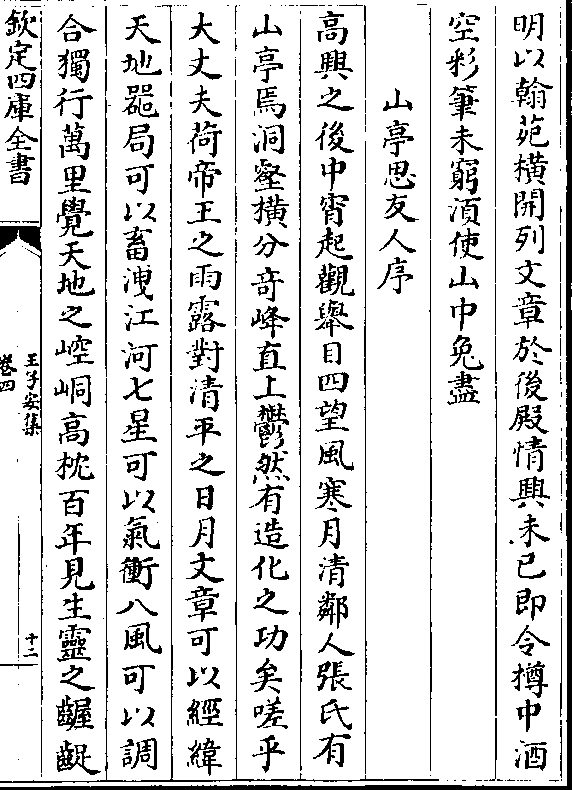 明以翰苑橫開列文章於後殿情興未已即令撙中酒
空彩筆未窮湏使山中兔盡
山亭思友人序
高興之後中宵起觀舉目四望風寒月清鄰人張氏有
山亭焉洞壑橫分竒峰直上鬱然有造化之功矣嗟乎
大丈夫荷帝王之雨露對清平之日月文章可以經緯
天地噐局可以畜洩江河七星可以氣衝八風可以調
合獨行萬里覺天地之崆峒高枕百年見生靈之齷齪
欽定四庫全書
王子安集
卷四
十二